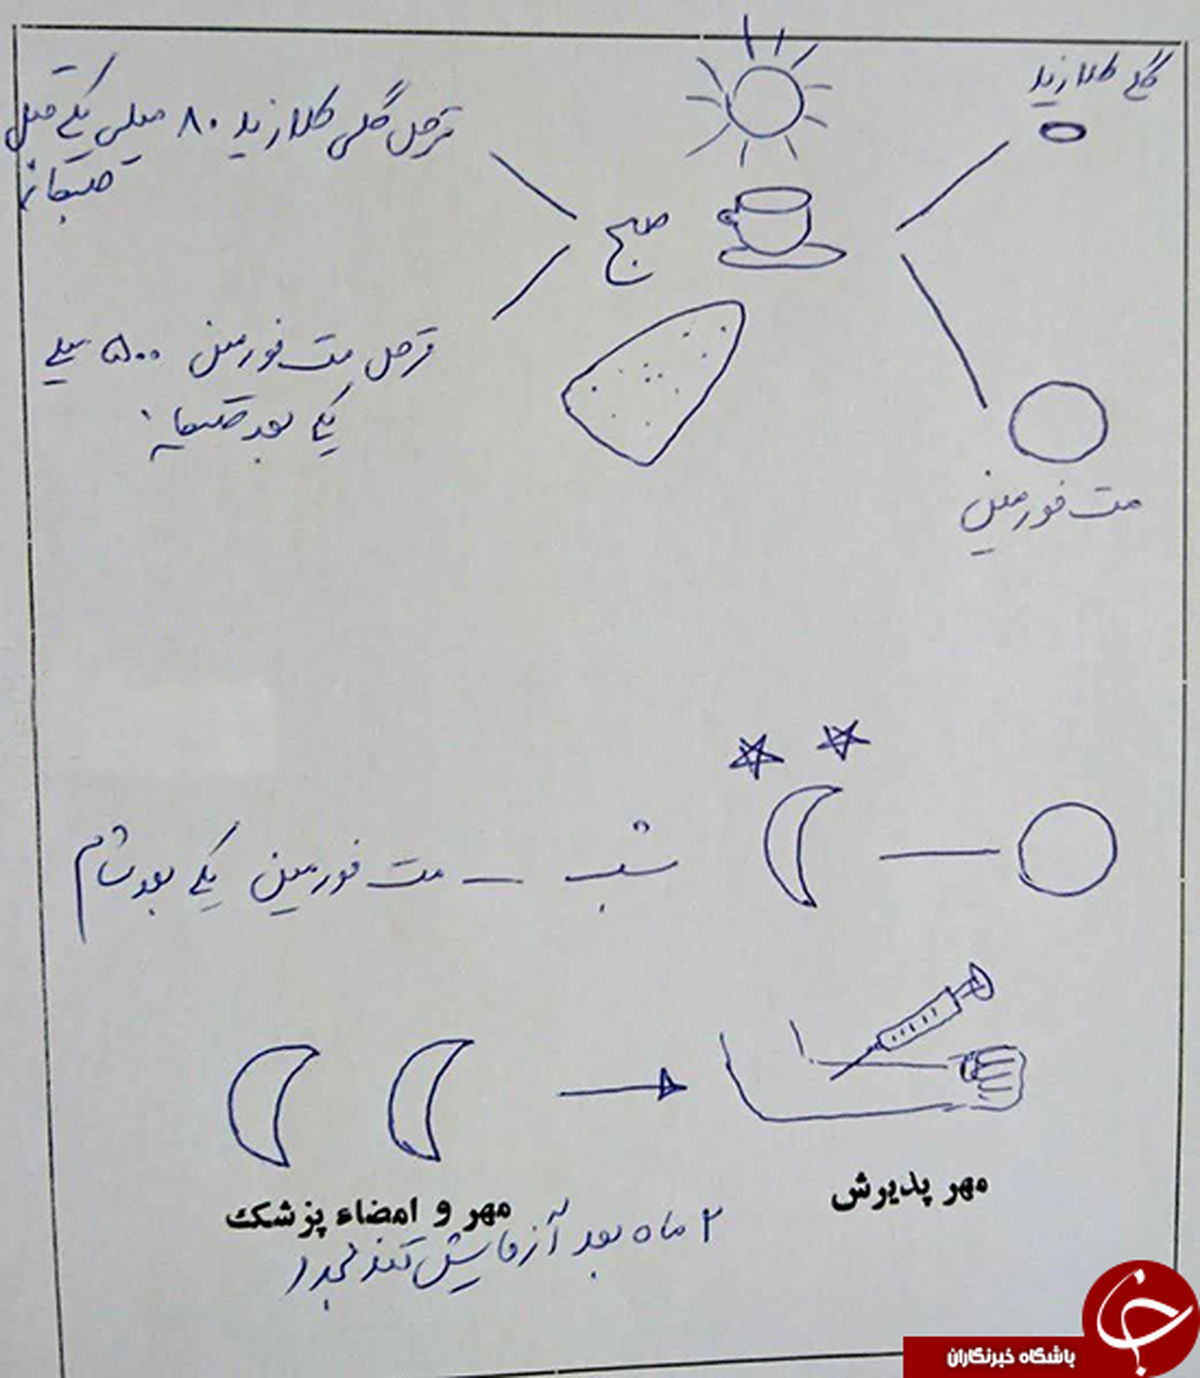 گلی کلازید
قرص گلی کلازید ۸۰ میلی یکی قبل
صبحانه
صبح
قرص مت فورمین ۵۰۰ میلی
یکی بعد صبحانه
مت فورمین
شب – مت فورمین یکی بعد شام
مهر پذیرش
مهر و امضاء پزشک
۲ ماه بعد آزمایش قند مجدد
باشگاه خبرنگاران